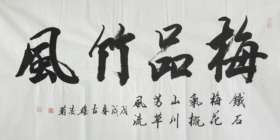 梅品竹風
鐵石
梅花
氣概
山川
香草
風流
戊戌春